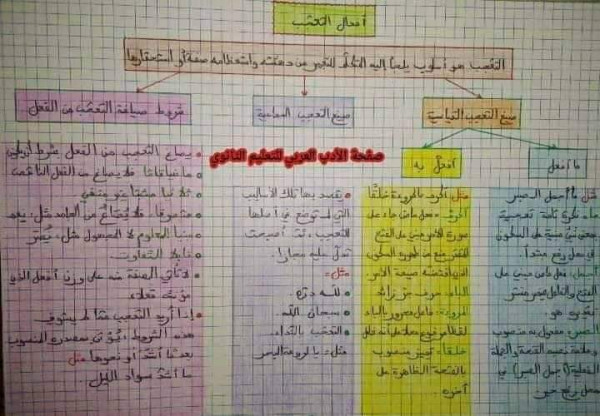 أفعال التعجب
التعجب هو أسلوب يلجأ إليه المتكلم للتعبير عن دهشته واستعظامه صفة أو استحقارها
صيغ التعجب القياسية
صيغ التعجب السماعية
شروط صياغة التعجب من الفعل
صفحة الأدب العربي للتعليم الثانوي
ما أفعل
أفعل به
مثل ما أجمل الصبر
ما: نكرة تامة تعجبية
مبنية على السكون
في محل رفع مبتدأ.
أجمل: فعل ماض مبني على
الفتح والفاعل ضمير مستتر
تقديره هو.
الصبر: مفعول به منصوب
وعلامة نصبه الفتحة والجملة
الفعلية (أجمل الصبر) في
محل رفع خبر
مثل أكرم بالعروبة خلقا
أكرم: فعل ماض جاء على
صورة الأمر مبني على الفتح
المقدر منع من ظهوره السكون
الذي اقتضته صيغة الأمر.
الباء: حرف جر زائد
العروبة: فاعل مجرور بالباء
لفظا مرفوع محلا على أنه فاعل
خلقا: تمييز منصوب
بالفتحة الظاهرة على
آخره.
يقصد بها تلك الأساليب
التي لم توضع في أصلها
للتعجب، ثم أصبحت
تدل عليه مجازا.
مثل:
لله دره
سبحان الله.
التعجب بالنداء.
مثل: يا لروعة البحر
يصاغ التعجب من الفعل بشرط أن يكون
ماضيا ثلاثيا، فلا يصاغ من الفعل الناقص
تاما مثبتا غير منفي
متصرفا، فلا يصاغ من الجامد مثل: نعم
مبنيا للمعلوم لا للمجهول مثل: يُعبَّر
قابلا للتفاوت.
لا تأتي الصفة منه على وزن أفعل الذي
مؤنثه فعلاء
إذا أريد التعجب مما لم يستوف
هذه الشروط، يؤتى بمصدره المنصوب
بعد ما أشد أو نحوها مثل
ما أشد سواد الليل.